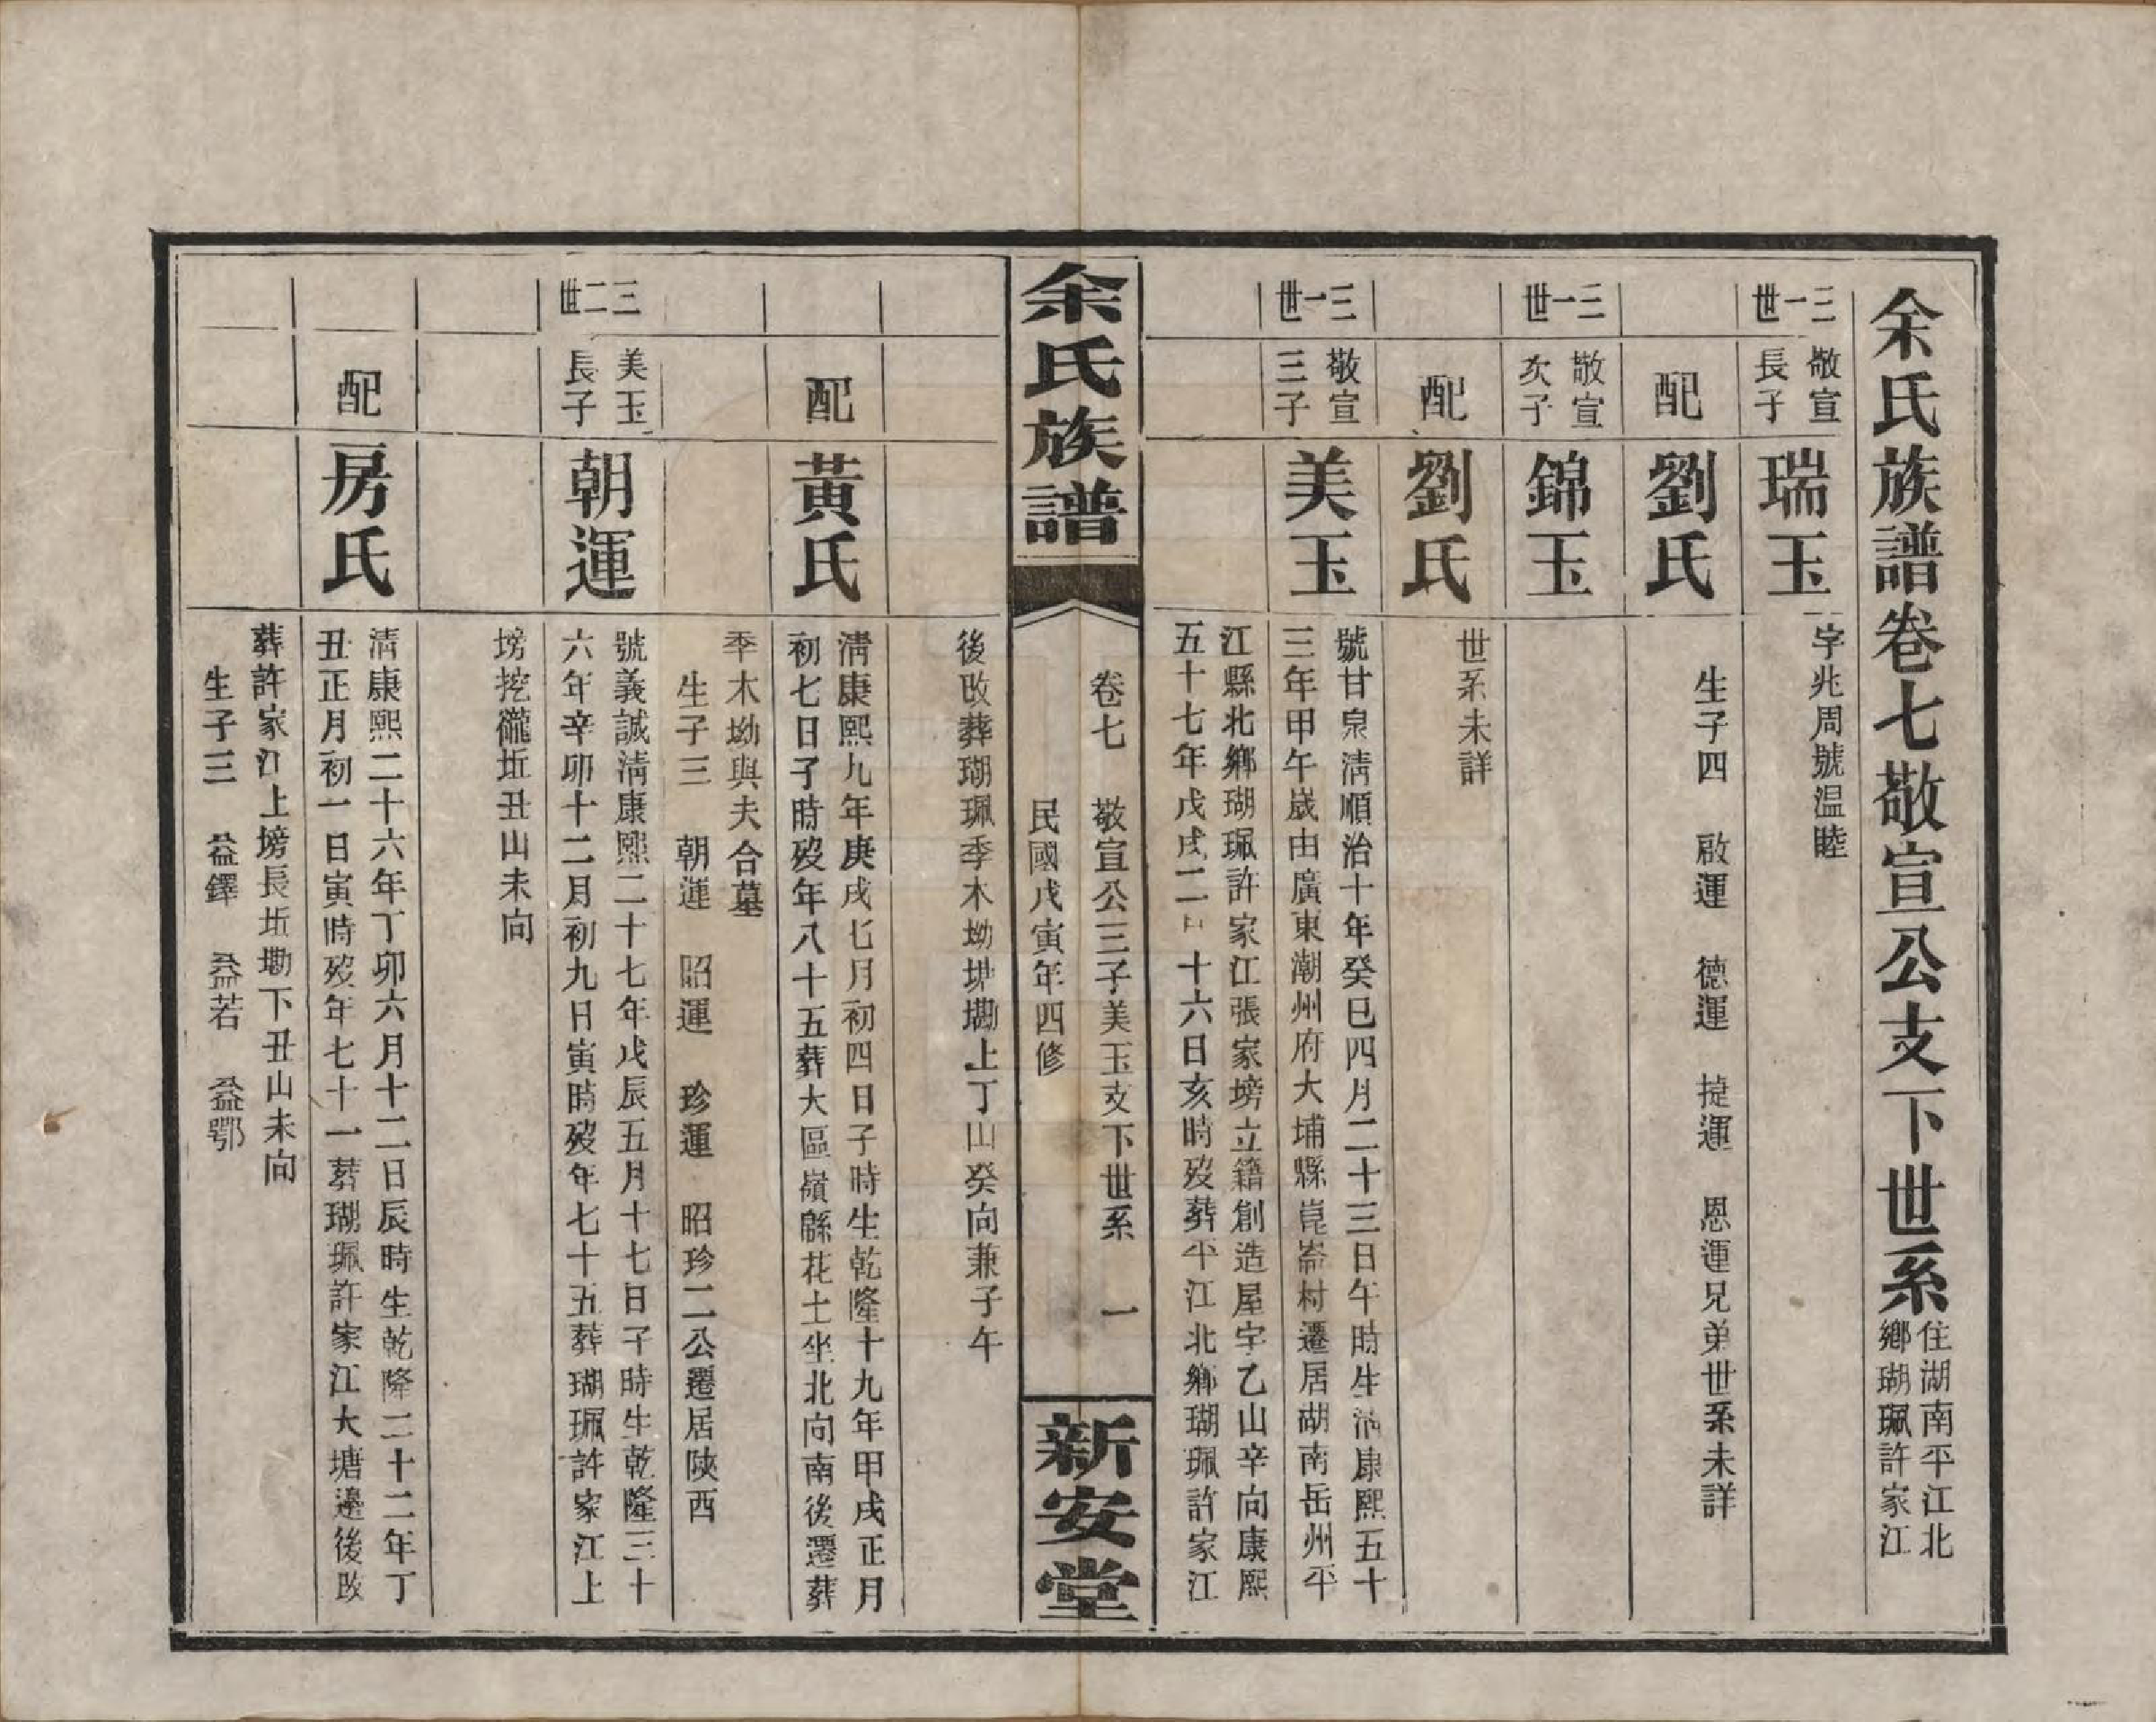 余氏族譜卷七敬宣公支下世系
住湖南平江北
鄉瑚珮許家江
三一世
敬宣
長子
瑞玉
字兆周號温睦
配
劉氏
生子四　啟運　德運　捷運　恩運兄弟世系未詳
三一世
敬宣
次子
錦玉
配
劉氏
世系未詳
三一世
敬宣
三子
美玉
號甘泉淸順治十年癸巳四月二十三日午時生淸康熙五十
三年甲午歲由廣東潮州府大埔縣崑崙村遷居湖南岳州平
江縣北鄉瑚珮許家江張家塝立籍創造屋宇乙山辛向康熙
五十七年戊戌二月十六日亥時歿葬平江北鄉瑚珮許家江
余氏族譜
卷七　敬宣公三子美玉支下世系　一
民國戊寅年四修
新安堂
後改葬瑚珮季木坳塅墈上丁山癸向兼子午
配
黃氏
淸康熙九年庚戌七月初四日子時生乾隆十九年甲戌正月
初七日子時歿年八十五葬大區嶺縣花土坐北向南後遷葬
季木坳與夫合墓
生子三　朝運　昭運　珍運　昭珍二公遷居陝西
三二世
美玉
長子
朝運
號義誠淸康熙二十七年戊辰五月十七日子時生乾隆三十
六年辛卯十二月初九日寅時歿年七十五葬瑚珮許家江上
塝挖䃧坵丑山未向
配
房氏
淸康熙二十六年丁卯六月十二日辰時生乾隆二十二年丁
丑正月初一日寅時歿年七十一葬瑚珮許家江大塘邊後改
葬許家江上塝長坵墈下丑山未向
生子三　益鐸　益若　益鄂